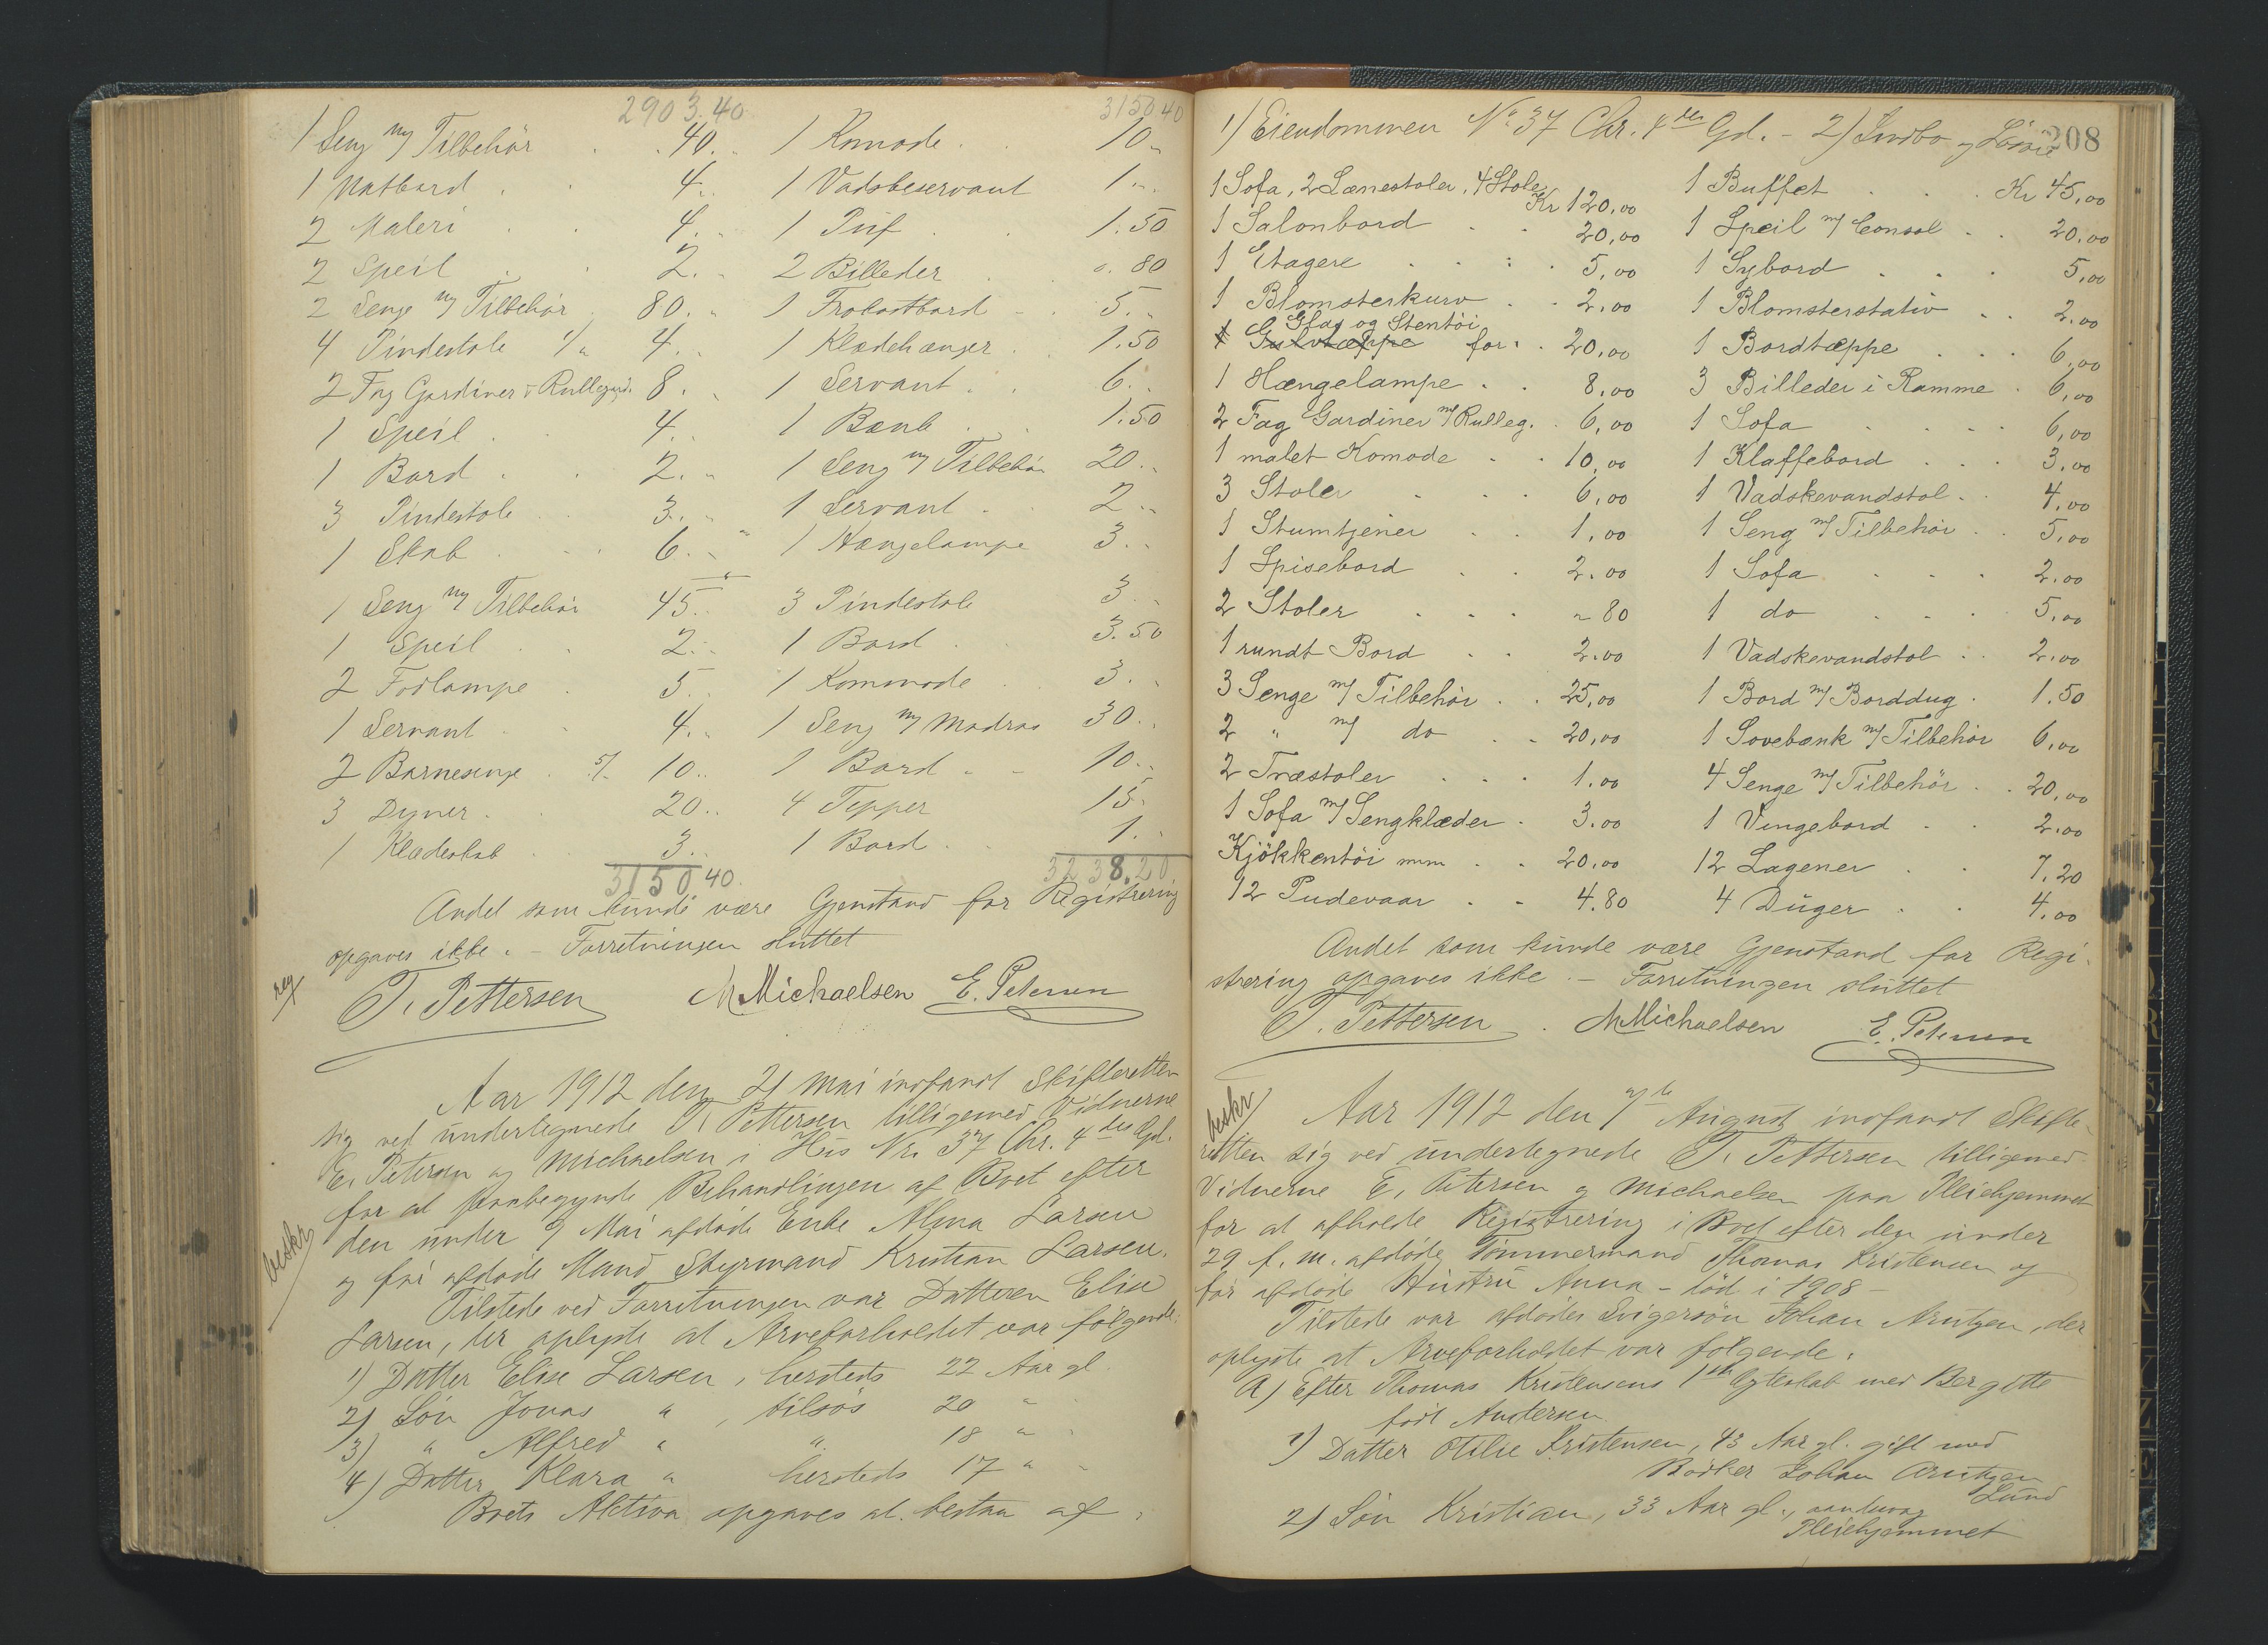 2903.40
3150 40
1 Seng m/ Tilbehör . . 40. „ 1 Komode . . 10 „
1 Natbord . . 4. „ 1 Vadskeservant 1 „
2 Maleri . . 4. „ 1 Puf . . 1.50
2 Speil . . 2. „ 2 Billeder . 0. 80
2 Senge m/ Tilbehör . 80. „ 1 Frokostbord . . 5. „
4 Pindestole 1/„ 4. „ 1 Klædehænger . 1.50
2 Fag Gardiner & Rullegard. 8. „ 1 Servant . . 6. „
1 Speil . . 4. „ 1 Bænk . . 1.50
1 Bord . . 2. „ 1 Seng m/ Tilbehör 20. „
3 Pindestole . 3. „ 1 Servant . . 2 „
1 Skab . . 6. „ 1 Hængelampe 3. „
1 Seng m/ Tilbehör 45. „ 3 Pindestole 3. „
1 Speil . . 2. „ 1 Bord . . 3.50
2 Fodlampe . 5. „ 1 Kommode . . 3. „
1 Servant . . 4. „ 1 Seng m/ Madras 30. „
2 Barnesenge . 5/„ 10. „ 1 Bord . . 10. „
3 Dyner . . 20. „ 4 Tepper 15. „
1 Klædeskab . 3. „ 1 Bord . . 1. „
3150 40. 3238.20
Andet som kunde være Gjenstand for Registrering
opgaves ikke. – Forretningen sluttet
reg
T. Pettersen M Michaelsen E. Petersen
Aar 1912 den 21 Mai indfandt Skifteretten
sig ved undertegnede T. Pettersen tilligemed Vidnerne
E. Petersen og Michaelsen i Hus No. 37 Chr. 4des Gd.
for at paabegynde Behandlingen af Boet efter
den under 9 Mai afdöde Enke Alma Larsen
beskr
og för afdöde Mand Styrmand Kristian Larsen.
Tilstede ved Forretningen var Datteren Elise
Larsen, der oplyste at Arveforholdet var fölgende:
1) Datter Elise Larsen, hersteds 22 Aar gl.
2) Sön Jonas „ , tilsös 20 „ .
3) „ Alfred „ „ 18 „ .
4) Datter Klara „ hersteds 17 „ „
Boets Aktiva opgaves at bestaa af:
208
1) Eiendommen No 37 Chr. 4des Gd. – 2) Indbo og Lösöre
1 Sofa, 2 Lænestoler, 4 Stole Kr 120,00 1 Buffet . . . Kr 45,00
1 Salonbord . . 20,00 1 Speil m/ Consol . . 20.00
1 Etagere . . . . 5,00 1 Sybord . . . 5,00
1 Blomsterkurv . . 2.00 1 Blomsterstativ . . 2.00
Glas og Stentöi
1 Gulvtæppe for . . 20,00 1 Bordtæppe . . . 6,00
1 Hængelampe . . 8,00 3 Billeder i Ramme . 6,00
2 Fag Gardiner m/ Rulleg. . 6,00 1 Sofa . . . . 6,00
1 malet Komode . . 10,00 1 Klaffebord . . . 3.00
3 Stoler . . . 6,00 1 Vadskevandstol . . 4,00
1 Stumtjener . . 1,00 1 Seng m/ Tilbehör . . 5,00
1 Spisebord . . 2.00 1 Sofa . . . 2.00
2 Stoler . . . „ 80 1 do . . . 5,00
1 rundt Bord . . 2.00 1 Vadskevandstol . . 2.00
3 Senge m/ Tilbehör . . 25,00 1 Bord m/ Borddug . 1.50
2 „ m/ do . . 20,00 1 Sovebænk m/ Tilbehör 6,00
2 Træstoler . . . 1.00 4 Senge m/ Tilbehör . . 20,00
1 Sofa m/ Sengklæder . 3.00 1 Vingebord . . 2.00
Kjökkentöi mm . . 20.00 12 Lagener . . 7,20
12 Pudevaar . . 4.80 4 Duger . . 4.00
Andet som kunde være Gjenstand for Regi-
strering opgaves ikke. – Forretningen sluttet
T. Pettersen . M Michaelsen E. Petersen
beskr
Aar 1912 den 7de August indfandt Skifte-
retten sig ved undertegnede T. Pettersen tilligemed
Vidnerne E. Petersen og Michaelsen paa Pleiehjemmet
for at afholde Registrering i Boet efter den under
29 f. m. afdöde Tömmermand Thomas Kristensen og
för afdöde Hustru Anna – död i 1908 –
Tilstede var afdödes Svigersön Johan Arntzen, der
oplyste at Arveforholdet var fölgende:
A) Efter Thomas Kristensens 1ste Ægteskab med Bergitte
födt Andersen
1) Datter Otilie Kristensen, 43 Aar gl. gift med
Bödker Johan Arntzen
Lund
2) Sön Kristian, 33 Aar gl.,
Pleiehjemmet